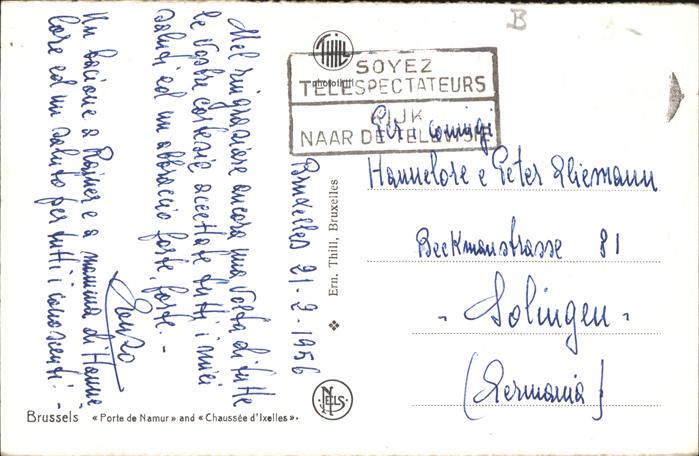 B
THILL
photothill
SOYEZ
TELESPECTATEURS
KIJK
NAAR DE TELEVISIE
Bruxelles 21-2-1956
Nel ringraziare ancora una volta di tutte
le Vostre cortesie accettate tutti i miei
saluti ed un abbraccio forte, forte. -
Un bacione a Rainer e a mamma di Hanne
lore ed un saluto per tutti i conoscenti. -
Per i coniugi
Hannelore e Peter Thiemann
Beckmanstrasse 81
" Solingen "
(Germania)
Ern. Thill, Bruxelles
NELS
Brussels «Porte de Namur» and «Chaussée d'Ixelles».